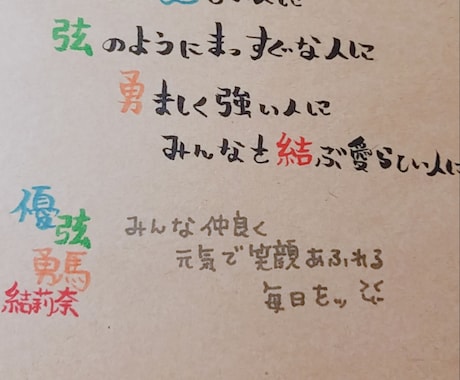 弦のようにまっすぐな人に
勇ましく強い人に
みんなを結ぶ愛らしい人に
優
弦
勇馬
結莉奈
みんな仲良く
元気で笑顔あふれる
毎日を